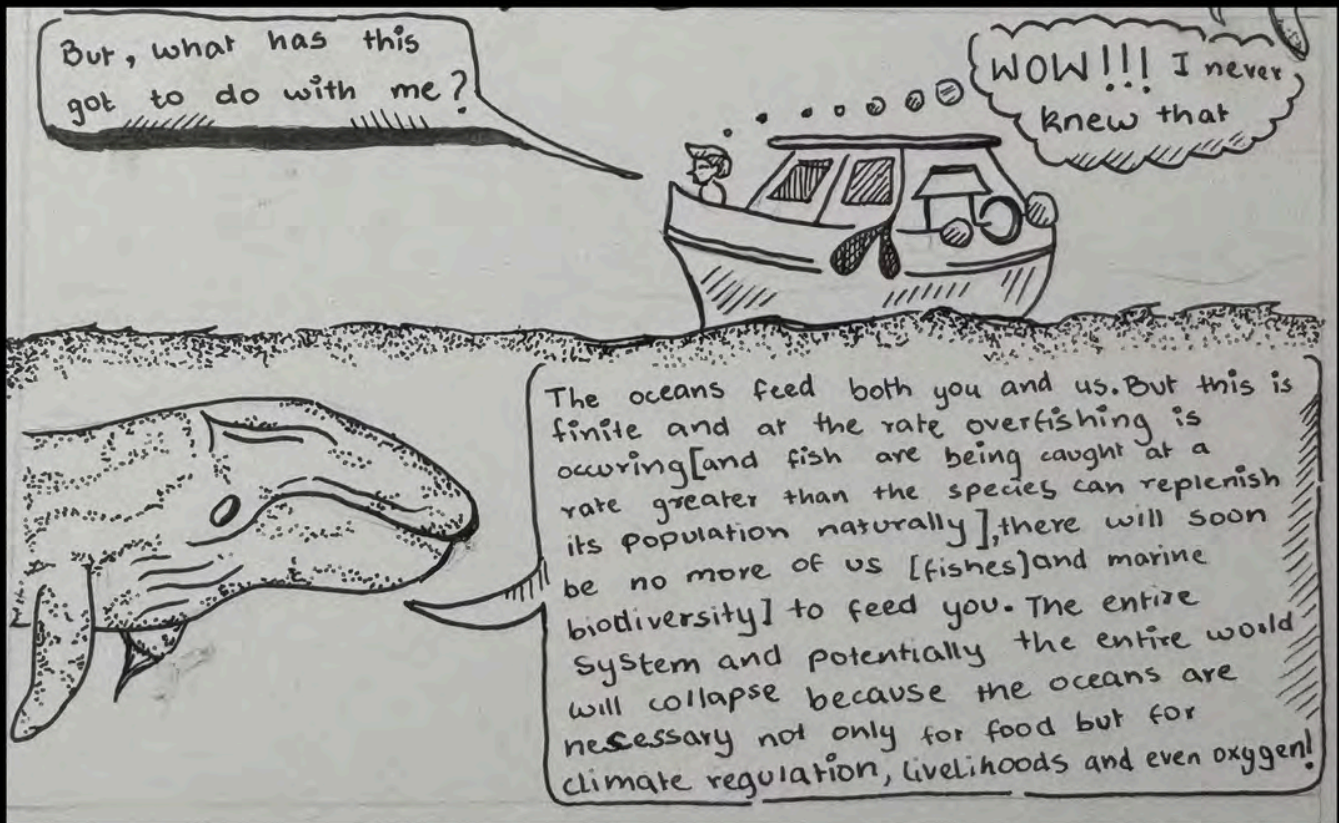 But, what has this
got to do with me?
WOW!!! I never
knew that
The oceans feed both you and us. But this is
finite and at the rate overfishing is
occuring [and fish are being caught at a
rate greater than the species can replenish
its population naturally], there will soon
be no more of us [fishes] and marine
biodiversity] to feed you. The entire
system and potentially the entire world
will collapse because the oceans are
necessary not only for food but for
climate regulation, livelihoods and even oxygen!